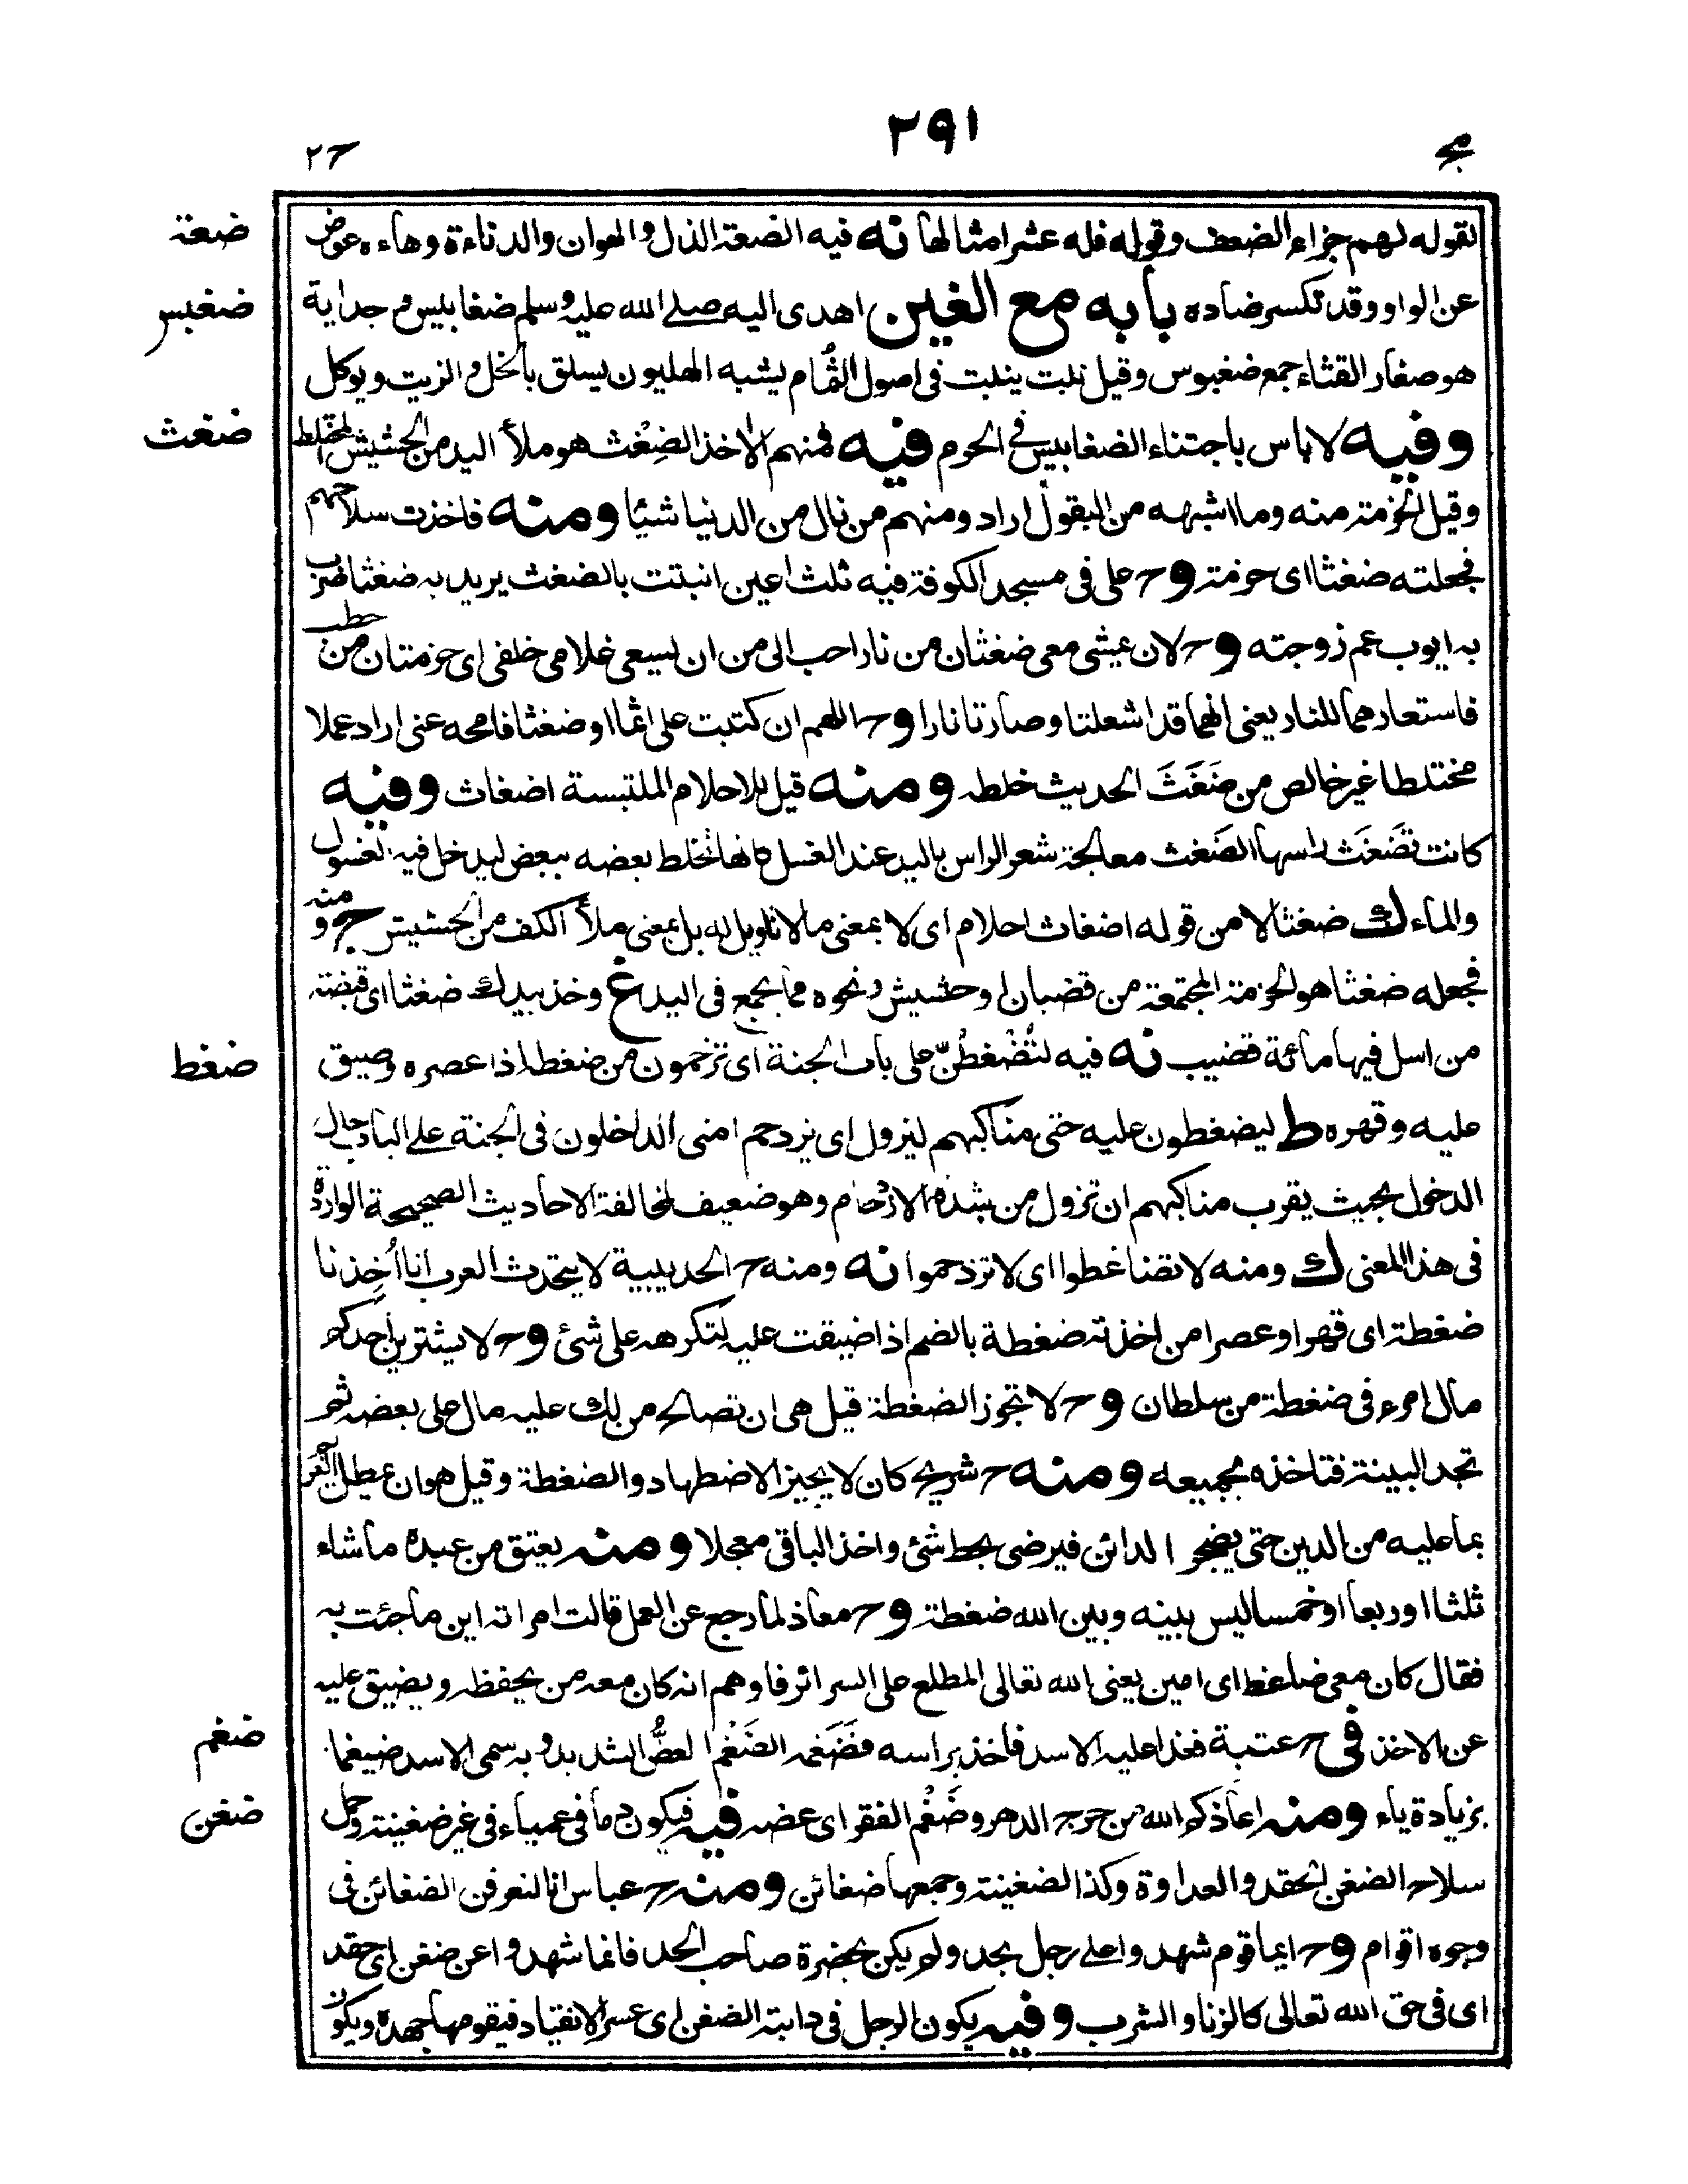 ٢٩١
مج
ج٢
لقوله لهم جزاء الضعف وقوله فله عشر امثالها نه فيه الضعة الذل والهوان والدناءة وهاءه عوض
ضعة
عن الواو وقد تكسر ضاده بابه مع الغين اهدى اليه صلى الله عليه وسلم ضغابيس وجداية
ضغبس
هو صغار القثاء جمع ضغبوس وقيل نبت ينبت فى اصول الثُمام يشبه الهليون يسلق بالخل والزيت ويوكل
وفيه لا باس باجتناء الضغابيس فى الحرم فيه فمنهم الأخذ الضِغْث هو ملأ اليد من الحشيش المختلط
ضغث
وقيل الحزمة منه وما اشبهه من البقول اراد ومنهم من نال من الدنيا شيئا ومنه فاخذت سلاحهم
فجعلته ضغثا اى حزمة وح على فى مسجد الكوفة فيه ثلث اعين انبتت بالضغث يريد به ضغثا ضرب
به ايوب عم زوجته وح لان يمشى معى ضغثان من نار احب الى من ان يسعى غلامى خلفى اى حزمتان من حطب
فاستعارهما للنار يعنى انهما قد اشعلتا وصارتا نارا وح اللهم ان كتبت على اثما او ضغثا فامحه عنى اراد عملا
مختلطا غير خالص من ضَغَثَ الحديث خلطه ومنه قيل للاحلام الملتبسة اضغاث وفيه
كانت تضَغَث راسها الضَغث معالجة شعر الراس باليد عند الغسل كانها تخلط بعضه ببعض ليدخل فيه الغسول
والماء ك ضغثا لا من قوله اضغاث احلام اى لا بمعنى ما لا تاويل له بل بمعنى ملأ الكف من الحشيش ج ومنه
فجعله ضغثا هو الحزمة المجتمعة من قضبان او حشيش ونحوه مما يجمع فى اليد غ وخذ بيدك ضغثا اى قبضة
من اسل فيها مائة قضيب نه فيه لتُضْغَطُنّ على باب الجنة اى تزحمون من ضغطه اذا عصره وضيق
ضغط
عليه وقهره ط ليضغطون عليه حتى مناكبهم لتزول اى يزدحم امتى الداخلون فى الجنة على الباب حال
الدخول بحيث يقرب مناكبهم ان تزول من شدة الازدحام وهو ضعيف لمخالفة الاحاديث الصحيحة الواردة
فى هذا المعنى ك ومنه لا تضاغطوا اى لا تزدحموا نه ومنه ح الحديبية لا يتحدث العرب انا اُخِذنا
ضغطة اى قهرا وعصرا من اخذته ضغطة بالضم اذا ضيقت عليه لتكرهه على شئ وح لا يشترين احدكم
مال امرء فى ضغطة من سلطان وح لا تجوز الضغطة قيل هى ان تصالح من لك عليه مال على بعضه ثم
تجد البينة فتاخذه بجميعه ومنه ح شريح كان لا يجيز الاضطهاد والضغطة وقيل هو ان يمطل الغريم
بما عليه من الدين حتى يضجر الدائن فيرضى بحط شئ واخذ الباقى معجلا ومنه يعتق من عبده ما شاء
ثلثا او ربعا او خمسا ليس بينه وبين الله ضغطة وح معاذ لما رجع عن العمل قالت امراته اين ما جئت به
فقال كان معى ضاغط اى امين يعنى الله تعالى المطلع على السرائر فاوهم انه كان معه من يحفظه ويضيق عليه
عن الاخذ فى ح عتبة فغدا عليه الاسد فاخذ براسه فضَغَمه الضَغْم العضُّ الشديد وبه سمى الاسد ضيغما
ضغم
بزيادة ياء ومنه اعاذكم الله من جرح الدهر وضَغْم الفقر اى عضه فيه فيكون دما فى عمياء فى غير ضغينة وحمل
ضغن
سلاح الضغن الحقد والعداوة وكذا الضغينة وجمعها ضغائن ومنه ح عباس انا لنعرف الضغائن فى
وجوه اقوام وح ايما قوم شهدوا على رجل بحد ولم يكن بحضرة صاحب الحد فانما شهدوا عن ضغن اى حقد
اى فى حق الله تعالى كالزنا والشرب وفيه يكون الرجل فى دابته الضغن اى عسر الانقياد فيقومها جهده ويكون